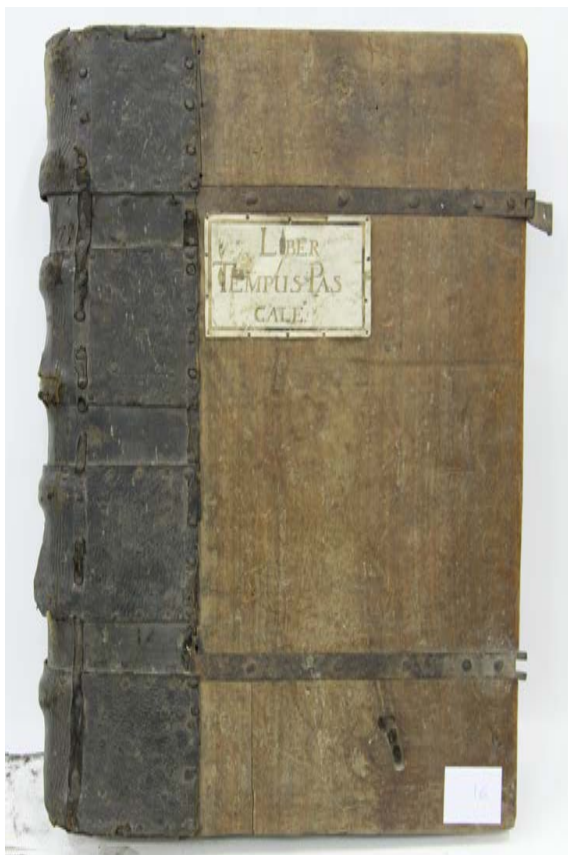 LIBER
TEMPUS PAS
CALE